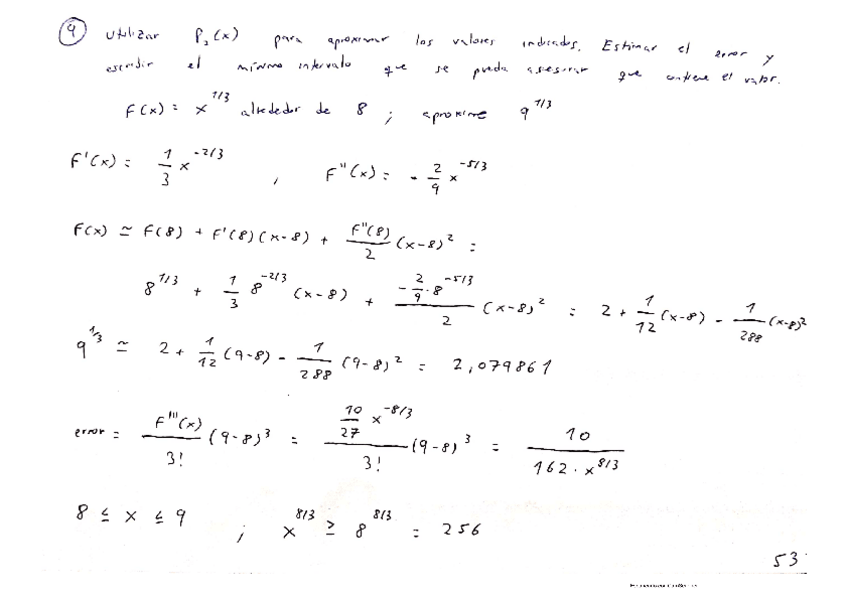 9 Utilizar P₂(x) para aproximar los valores indicados. Estimar el error y
escribir el mínimo intervalo que se pueda asegurar que contiene el valor.
F(x) = x^(1/3) alrededor de 8 ; aproxime 9^(1/3)
F'(x) = 1/3 x^(-2/3) , F''(x) = - 2/9 x^(-5/3)
F(x) ≃ F(8) + F'(8)(x-8) + F''(8)/2 (x-8)² =
8^(1/3) + 1/3 8^(-2/3) (x-8) + (-2/9 · 8^(-5/3))/2 (x-8)² = 2 + 1/12 (x-8) - 1/288 (x-8)²
9^(1/3) ≃ 2 + 1/12 (9-8) - 1/288 (9-8)² = 2,079861
error = F'''(x)/3! (9-8)³ = (10/27 x^(-8/3))/3! (9-8)³ = 10/(162 · x^(8/3))
8 ≤ x ≤ 9 ; x^(8/3) ≥ 8^(8/3) = 256
53